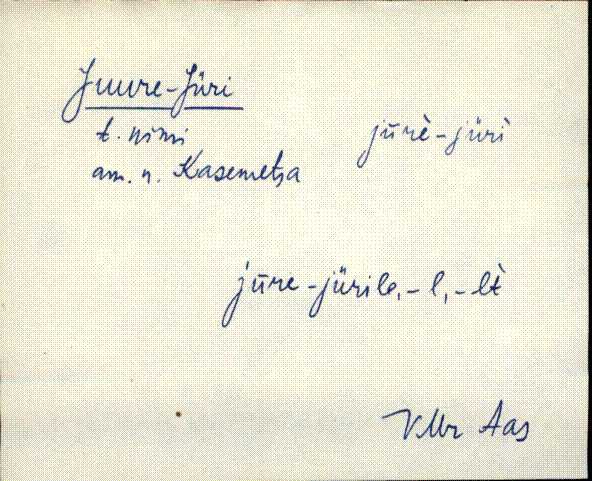 Juure-Jüri
t. nimi
am. n. Kasemetsa
jūrè-jürì
jūre-jürile, -l, -lt̀
VMr Aas